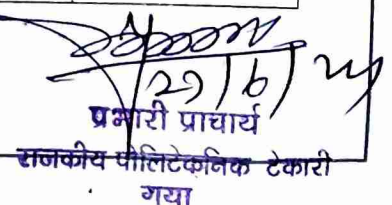 प्रभारी प्राचार्य
राजकीय पोलिटेकनिक टेकारी
गया